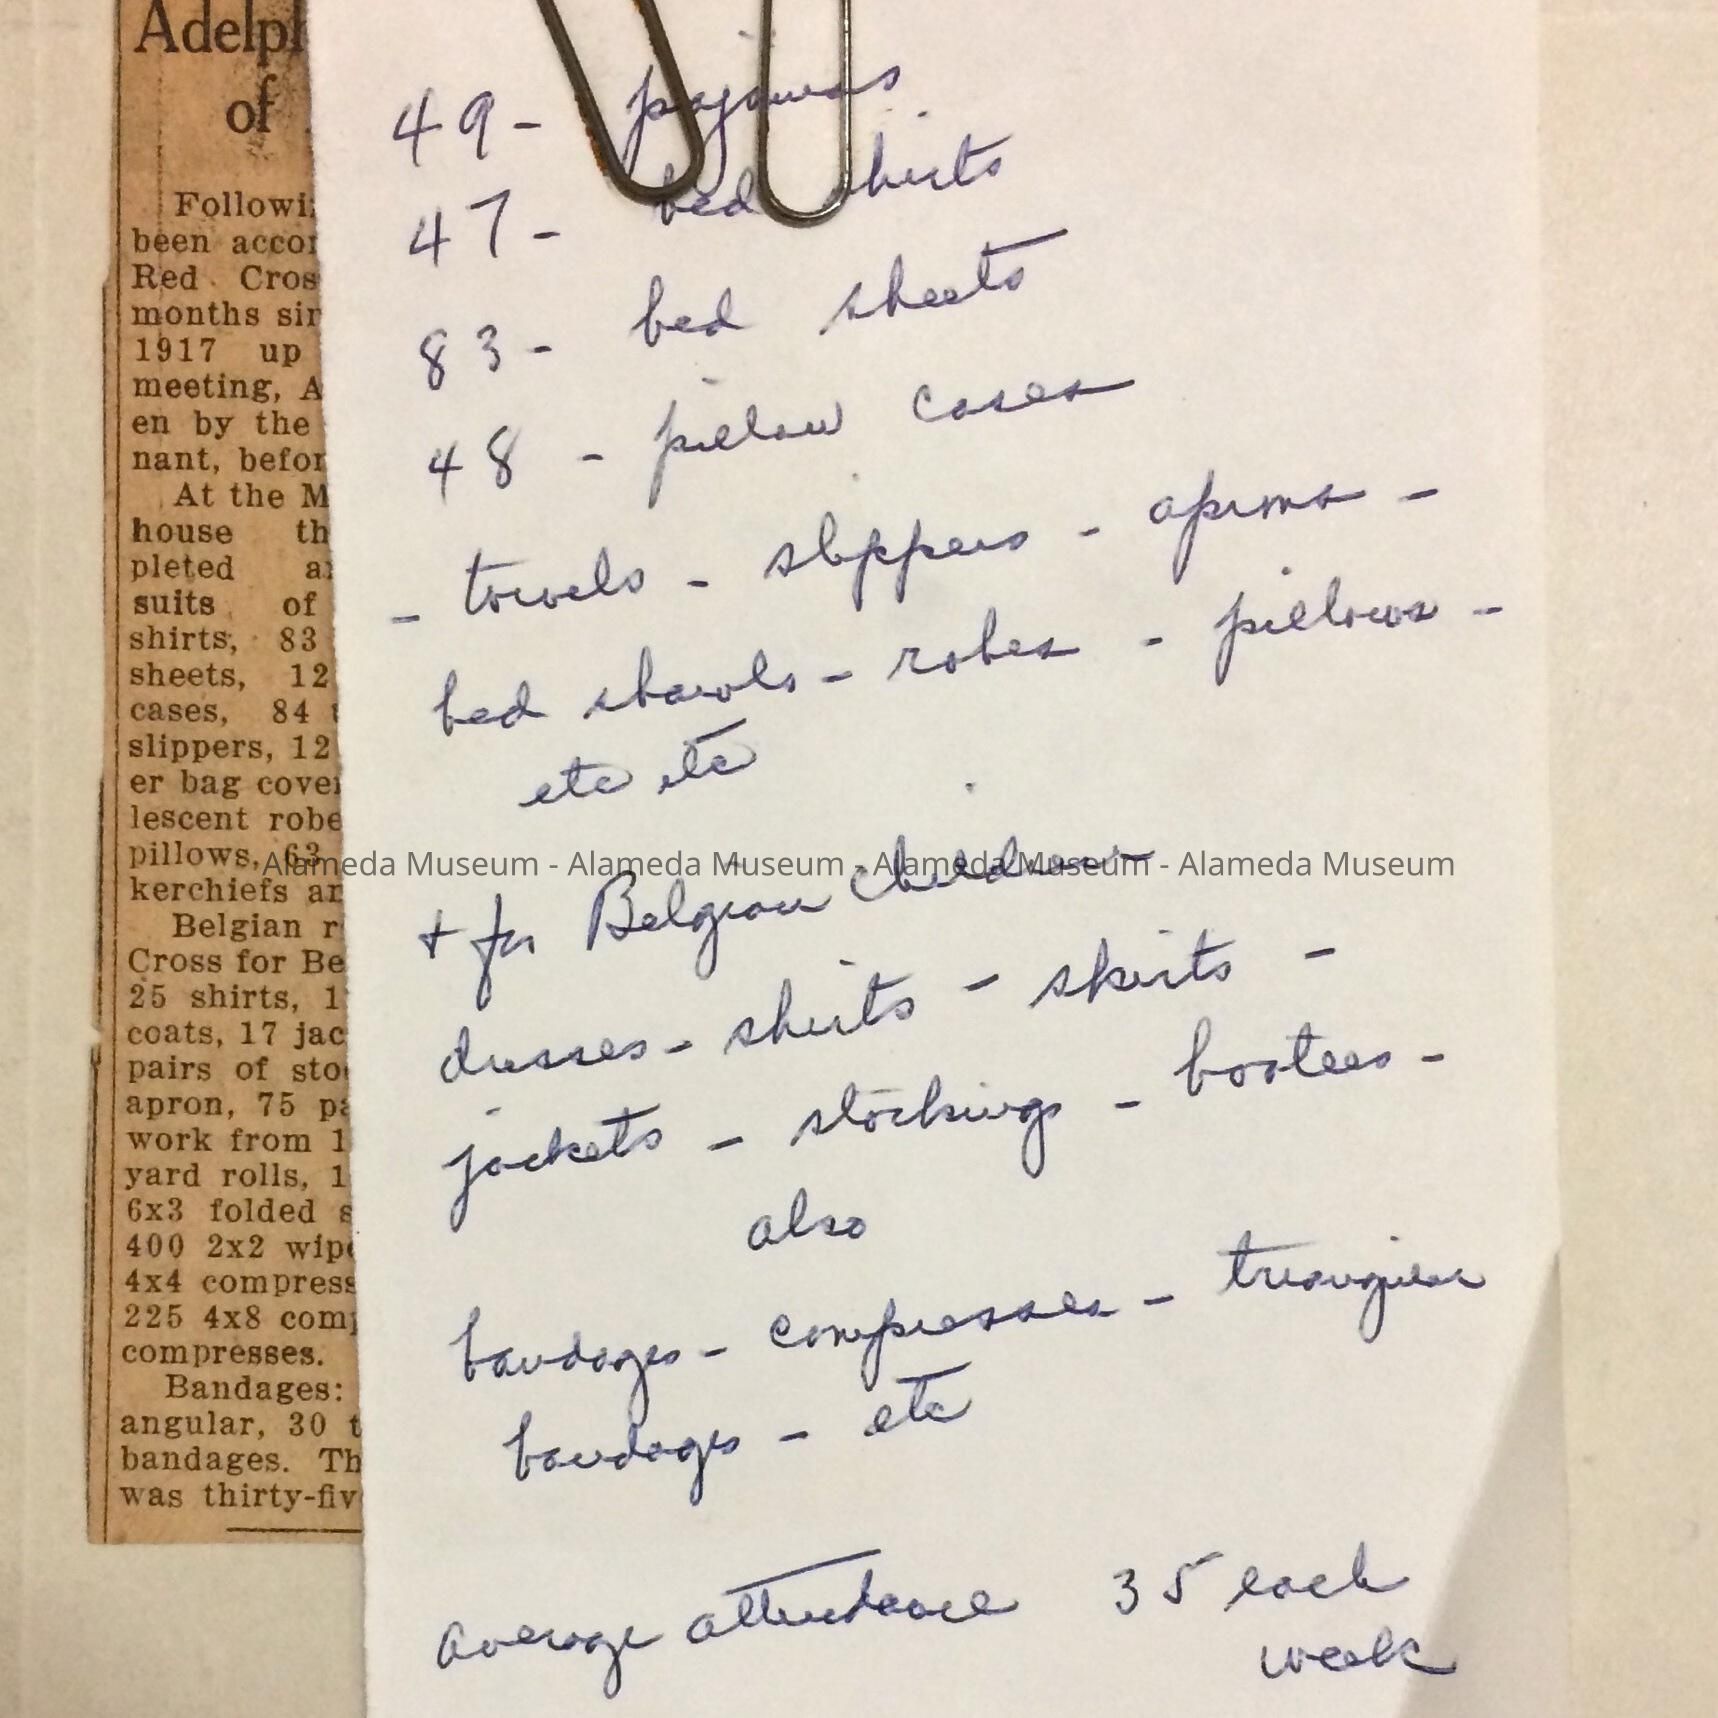 Adelph
of
Followi
been accor
Red Cros
months sir
1917 up
meeting, A
en by the
nant, befor
At the M
house th
pleted a
suits of
shirts, 83
sheets, 12
cases, 84
slippers, 12
er bag cover
lescent robe
pillows, 63
kerchiefs ar
Belgian r
Cross for Be
25 shirts, 1
coats, 17 jac
pairs of sto
apron, 75 pa
work from 1
yard rolls, 1
6x3 folded s
400 2x2 wipe
4x4 compress
225 4x8 comp
compresses.
Bandages:
angular, 30 t
bandages. Th
was thirty-fiv
49 - pajamas
47 - bed shirts
83 - bed sheets
48 - pillow cases
- towels - slippers - aprons -
bed shawls - robes - pillows -
etc etc
+ for Belgian children
dresses - shirts - skirts -
jackets - stockings - bootees -
also
bandages - compresses - triangular
bandages - etc
average attendance 35 each
week
Alameda Museum - Alameda Museum - Alameda Museum - Alameda Museum